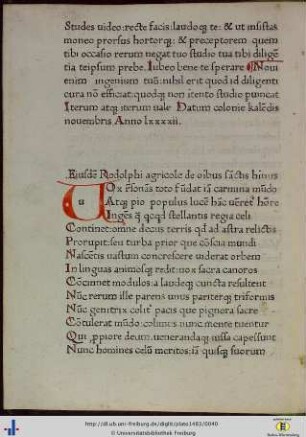 Studes uideo: recte facis: laudoq̃ te: & ut insistas
moneo prorsus hortorq̃: & preceptorem quem
tibi occasio rerum negat tuo studio tua tibi diligẽ
tia teipsum prebe. Iubeo bene te sperare Nou
enim ingenium tuũ: nihil erit quod id diligenti
cura nõ efficiat: quodq̃ non itento studio puincat
Iterum atq̃ iterum uale Datum colonie kalẽdis
nouembris Anno lxxxxii.
Eiusdẽ Rodolphi agricole de oibus sãctis himnus
u
Ox
toto fũdat iã carmina mũdo
Atq̃ pio populus lucẽ hãc uẽret hõore
Ingẽs q̃ qcqd stellantis regia celi
Continet: omne decus terris qd ad astra relictis
Prorupit: seu turba prior que cõscia mundi
Nascẽtis uastum concrescere uiderat orbem
In linguas animosq̃ redit: uox sacra canoros
Cõcinnet modulos: a laudeq̃ cuncta resultent
Nũc rerum ille parens unus pariterq̃ triformis
Nũc genitrix colit
pacis que pignora sacre
Cõtulerat mũdo: colimus nunc mente tuentur
Qui ppiore deum. uenerandaq̃ iussa capessunt
Nunc homines celũ meritos: iã quisq̃ suorum
http://dl.ub.uni-freiburg.de/diglit/plato1483/0040
© Universitätsbibliothek Freiburg